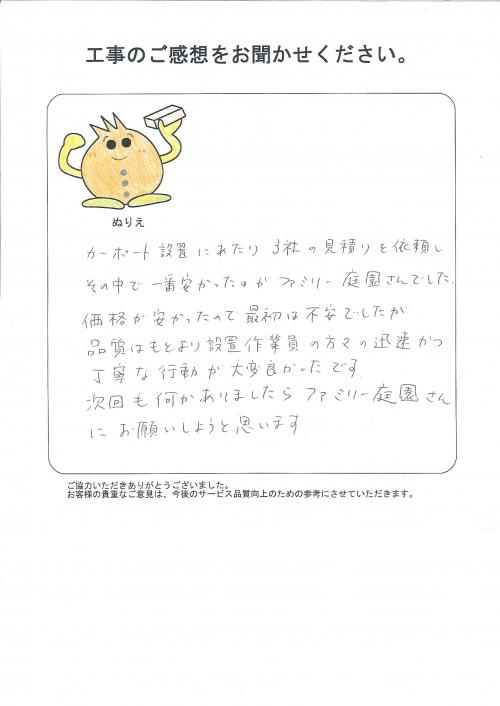 工事のご感想をお聞かせください。
ぬりえ
カーポート設置にあたり3社の見積りを依頼し
その中で一番安かったのがファミリー庭園さんでした。
価格が安かったので最初は不安でしたが
品質はもとより設置作業員の方々の迅速かつ
丁寧な行動が大変良かったです。
次回も何かありましたらファミリー庭園さん
にお願いしようと思います。
ご協力いただきありがとうございました。
お客様の貴重なご意見は、今後のサービス品質向上のための参考にさせていただきます。